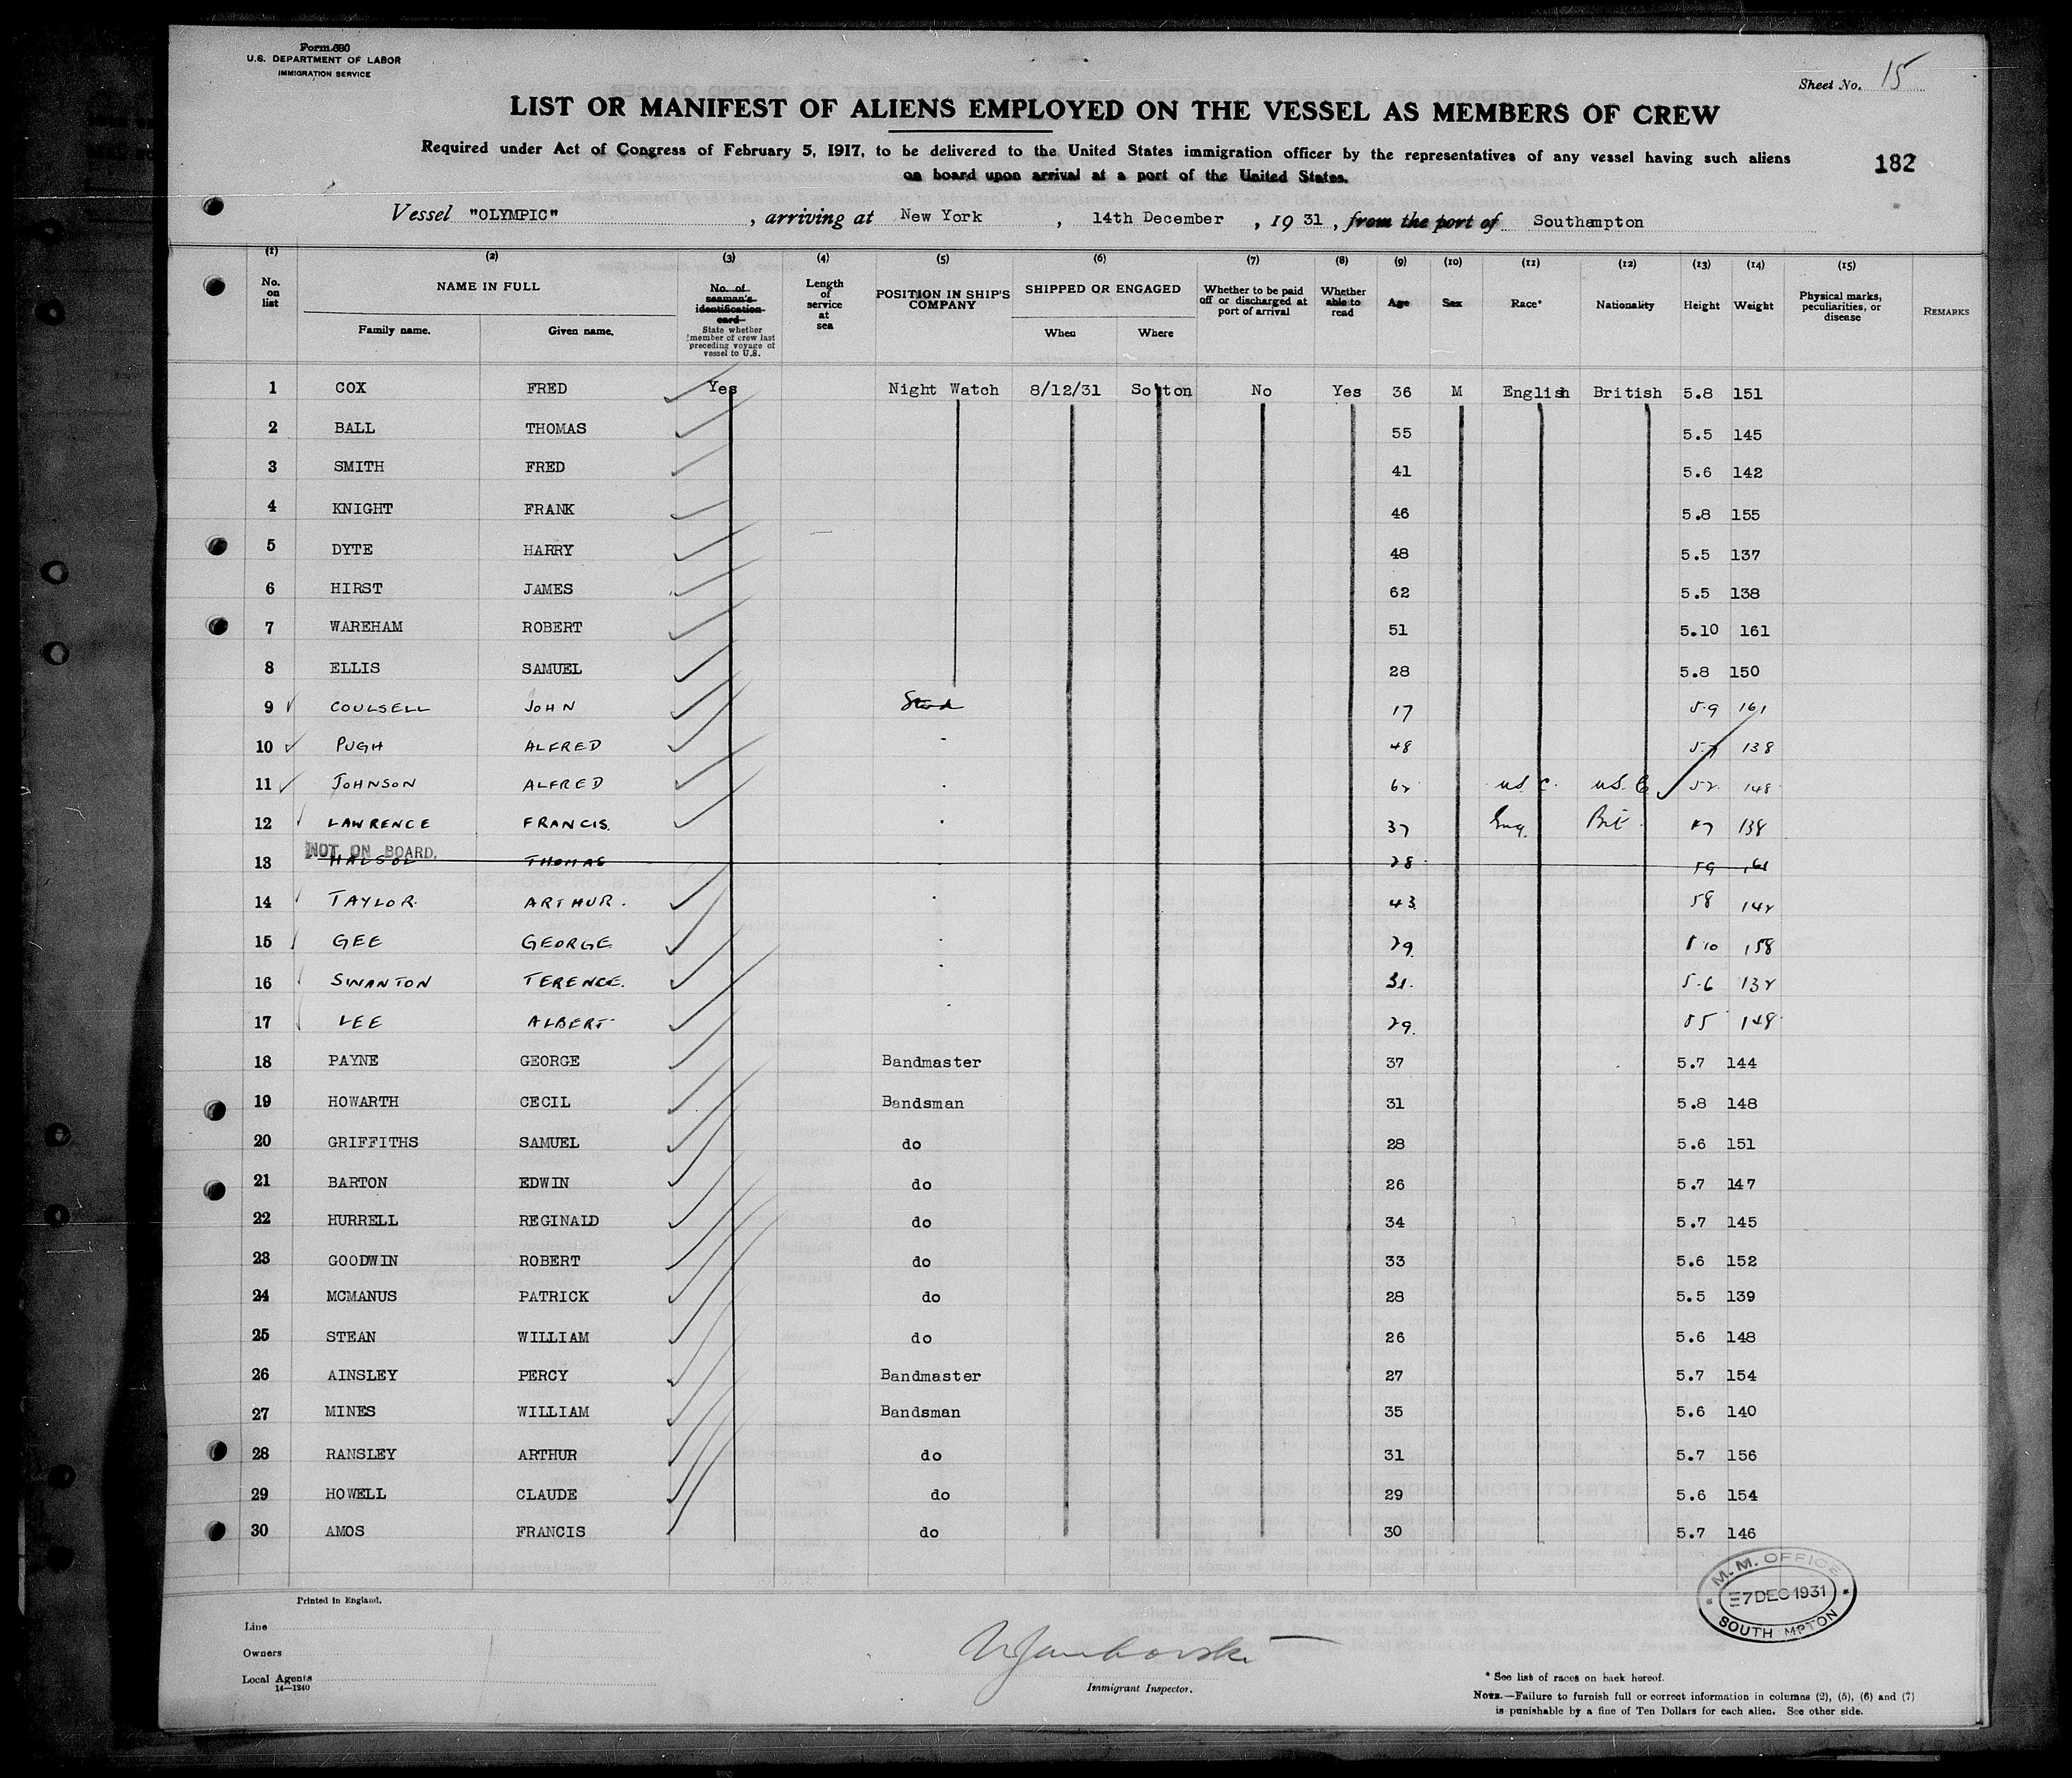 Form 680
U.S. DEPARTMENT OF LABOR
IMMIGRATION SERVICE
Sheet No. 15
LIST OR MANIFEST OF ALIENS EMPLOYED ON THE VESSEL AS MEMBERS OF CREW
Required under Act of Congress of February 5, 1917, to be delivered to the United States immigration officer by the representatives of any vessel having such aliens
on board upon arrival at a port of the United States.
182
Vessel "OLYMPIC", arriving at New York, 14th December, 1931, from the port of Southampton
(1) (2) (3) (4) (5) (6) (7) (8) (9) (10) (11) (12) (13) (14) (15)
No. on list NAME IN FULL Family name. Given name. No. of seaman's identification card State whether member of crew last preceding voyage of vessel to U.S. Length of service at sea POSITION IN SHIP'S COMPANY SHIPPED OR ENGAGED When Where Whether to be paid off or discharged at port of arrival Whether able to read Age Sex Race* Nationality Height Weight Physical marks, peculiarities, or disease REMARKS
1 COX FRED Yes Night Watch 8/12/31 So'ton No Yes 36 M English British 5.8 151
2 BALL THOMAS 55 5.5 145
3 SMITH FRED 41 5.6 142
4 KNIGHT FRANK 46 5.8 155
5 DYTE HARRY 48 5.5 137
6 HIRST JAMES 62 5.5 138
7 WAREHAM ROBERT 51 5.10 161
8 ELLIS SAMUEL 28 5.8 150
9 COULSELL JOHN 17 5.9 161
10 PUGH ALFRED 48 138
11 JOHNSON ALFRED 62 U.S.C. U.S.C. 52 148
12 LAWRENCE FRANCIS. 37 Eng. Brit. 57 138
NOT ON BOARD.
13 HALSOL THOMAS 28 59 161
14 TAYLOR ARTHUR. 43 58 142
15 GEE GEORGE 29 5 10 158
16 SWANTON TERENCE. 31. 5.6 132
17 LEE ALBERT 29. 55 148
18 PAYNE GEORGE Bandmaster 37 5.7 144
19 HOWARTH CECIL Bandsman 31 5.8 148
20 GRIFFITHS SAMUEL do 28 5.6 151
21 BARTON EDWIN do 26 5.7 147
22 HURRELL REGINALD do 34 5.7 145
23 GOODWIN ROBERT do 33 5.6 152
24 MCMANUS PATRICK do 28 5.5 139
25 STEAN WILLIAM do 26 5.6 148
26 AINSLEY PERCY Bandmaster 27 5.7 154
27 MINES WILLIAM Bandsman 35 5.6 140
28 RANSLEY ARTHUR do 31 5.7 156
29 HOWELL CLAUDE do 29 5.6 154
30 AMOS FRANCIS do 30 5.7 146
M.M. OFFICE
7 DEC 1931
SOUTH MPTON
Printed in England.
Line
Owners
Local Agents
14—1240
Immigrant Inspector.
* See list of races on back hereof.
NOTE.—Failure to furnish full or correct information in columns (2), (5), (6) and (7)
is punishable by a fine of Ten Dollars for each alien. See other side.